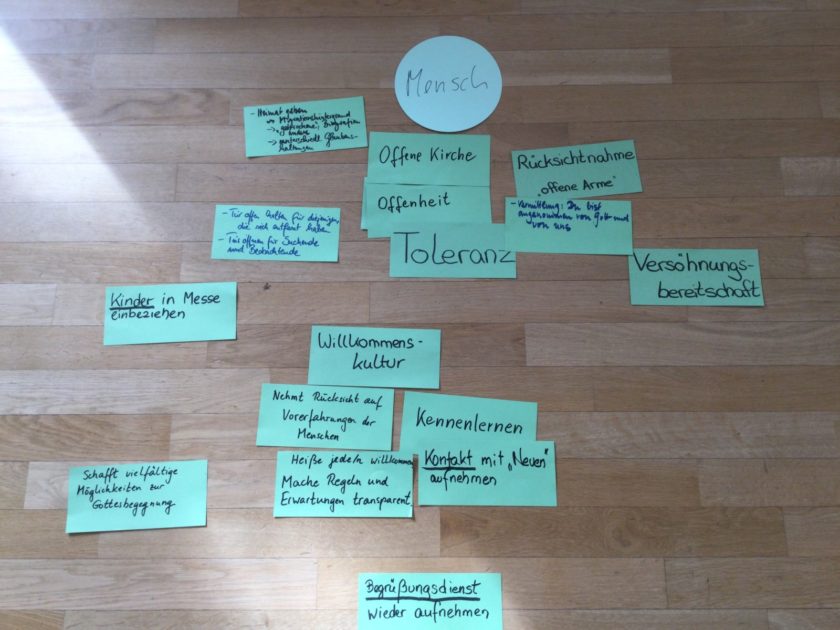 Mensch
- Heimat geben
Migrationshintergrund
andere
Offene Kirche
Offenheit
Toleranz
Rücksichtnahme
"offene Arme"
- Vermittlung: Du bist
angenommen von Gott und
von uns
- Tür offen halten für diejenigen,
die sich entfernt haben
- Tür öffnen für Suchende
und Beobachtende
Versöhnungs-
bereitschaft
Kinder in Messe
einbeziehen
Willkommens-
kultur
Nehmt Rücksicht auf
Vorerfahrungen der
Menschen
Kennenlernen
Heiße jede/n willkommen
Mache Regeln und
Erwartungen transparent.
Kontakt mit „Neuen"
aufnehmen
Schafft vielfältige
Möglichkeiten zur
Gottesbegegnung
Begrüßungsdienst
wieder aufnehmen